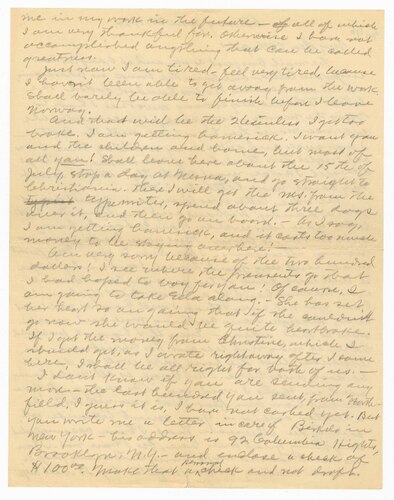 me in my work in the future – of all of which
I am very thankful for. Otherwise I have not
accomplished anything that can be called
greatness.
Just now I am tired – feel very tired, because
I haven't been able to get away from the work.
Shall barely be able to finish before I leave
Norway.
And that will be the I get too
broke. I am getting homesick, I want you
and the children and home, but most of
all you! Shall leave here about the 15th of
July, stop a day at and go straight to
Christiania. there I will get the ms. from the
typewriter, spend about three days
over it, and then go on board. – As I say,
I am getting homesick, and it costs too much
money to be staying over here! –
Am very sorry because of the two hundred
dollars! I see where the presents go that
I had hoped to buy for you! Of course, I
am going to take Ella along. – She has set
her heart so on going that if she couldn't
go now she would be quite heartbroke.
If I get the money from Christine, which I
should get, as I wrote right away after I came
here, I shall be all right for both of us. –
I don't know if you are sending any
more – the last hundred you sent, from North-
field, I guess it is, I have not cashed yet. But
you write me a letter in care of Berthas in
New York – his address is 92 Columbia Hights,
Brooklyn, N.Y. – and enclose a check of
$100.00. Make that personal check and not draft.